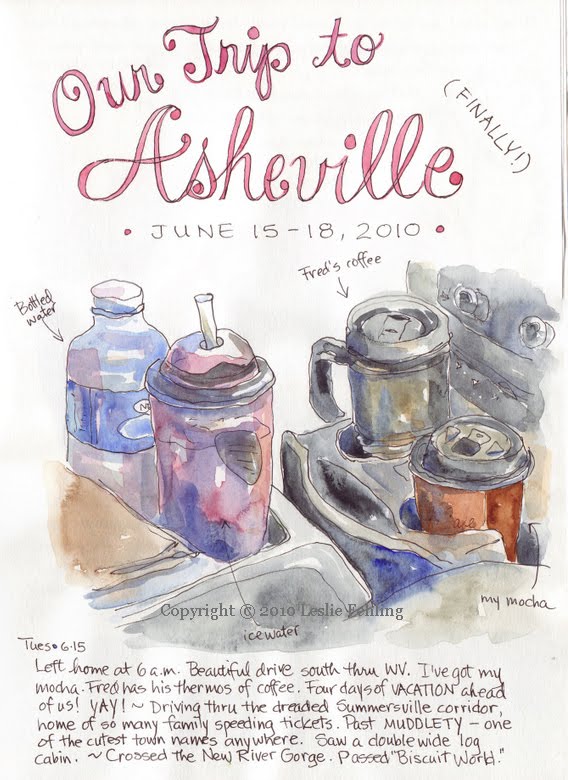 Our Trip to
(FINALLY!)
Asheville
• JUNE 15-18, 2010 •
Fred's coffee
Bottled
water
my mocha
Copyright © 2010 Leslie Fehling
ice water
Tues • 6·15
Left home at 6 a.m. Beautiful drive south thru WV. I've got my
mocha. Fred has his thermos of coffee. Four days of VACATION ahead
of us! YAY! ~ Driving thru the dreaded Summersville corridor,
home of so many family speeding tickets. Past MUDDLETY - one
of the cutest town names anywhere. Saw a double wide log
cabin. ~ Crossed the New River Gorge. Passed "Biscuit World."